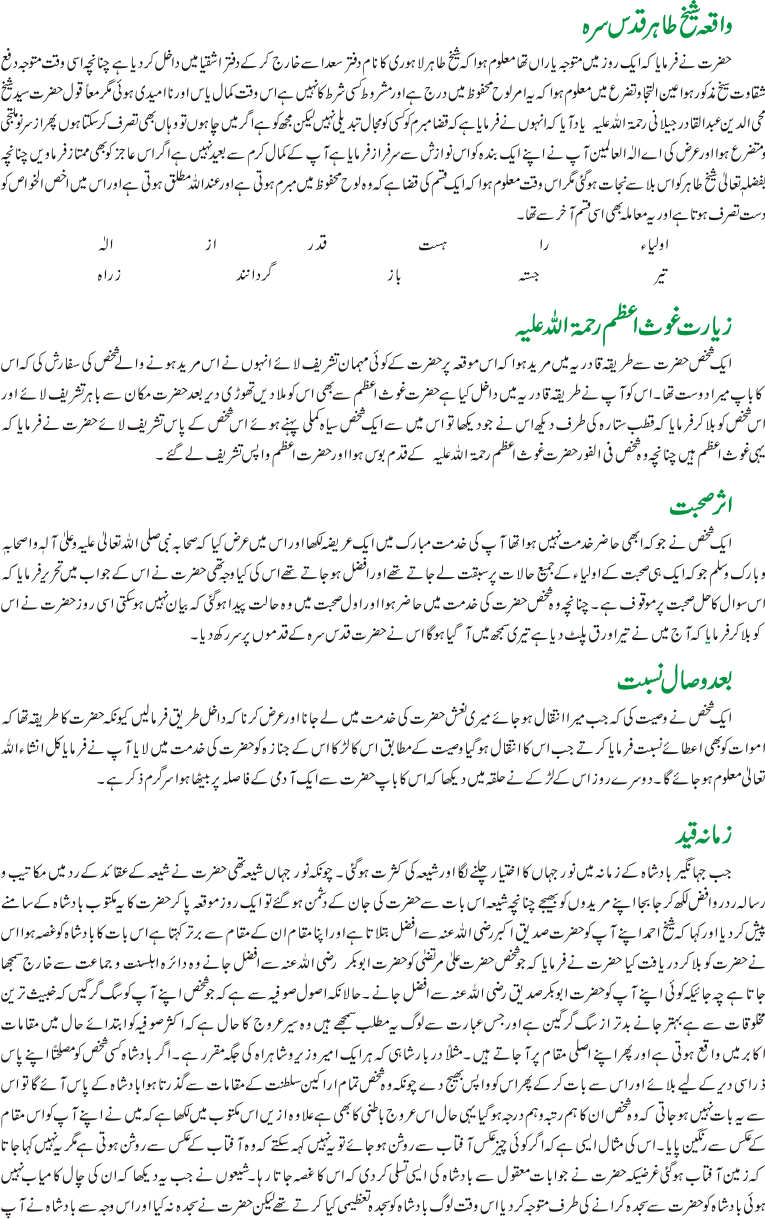 واقعہ شیخ طاہر قدس سرہ
حضرت نے فرمایا کہ ایک روز میں متوجہ یاراں تھا معلوم ہوا کہ شیخ طاہر لاہوری کا نام دفتر سعدا سے خارج کر کے دفتر اشقیا میں داخل کر دیا ہے چنانچہ اسی وقت متوجہ دفع
شقاوت شیخ مذکور ہوا عین التجا و تضرع میں معلوم ہوا کہ یہ امر لوح محفوظ میں درج ہے اور مشروط کسی شرط کا نہیں ہے اس وقت کمال یاس اور ناامیدی ہوئی مگر معاً قول حضرت سید شیخ
محی الدین عبدالقادر جیلانی رحمۃ اللہ علیہ یاد آیا کہ انہوں نے فرمایا ہے کہ قضا مبرم کو کسی کو مجال تبدیلی نہیں لیکن مجھ کو ہے اگر میں چاہوں تو وہاں بھی تصرف کر سکتا ہوں پھر از سر نو ملتجی
و متضرع ہوا اور عرض کی اے الہ العالمین آپ نے اپنے ایک بندہ کو اس نوازش سے سرفراز فرمایا ہے آپ کے کمال کرم سے بعید نہیں ہے اگر اس عاجز کو بھی ممتاز فرماویں چنانچہ
بفضلہٖ تعالیٰ شیخ طاہر کو اس بلا سے نجات ہو گئی مگر اس وقت معلوم ہوا کہ ایک قسم کی قضا ہے کہ وہ لوح محفوظ میں مبرم ہوتی ہے اور عند اللہ مطلق ہوتی ہے اور اس میں اخص الخواص کو
دست تصرف ہوتا ہے اور یہ معاملہ بھی اسی قسم آخر سے تھا۔
اولیاء را ہست قدر از الہٰ
تیر جستہ باز گردانند ز راہ
زیارت غوث اعظم رحمۃ اللہ علیہ
ایک شخص حضرت سے طریقہ قادریہ میں مرید ہوا کہ اس موقعہ پر حضرت کے کوئی مہمان تشریف لائے انہوں نے اس مرید ہونے والے شخص کی سفارش کی کہ اس
کا باپ میرا دوست تھا۔ اس کو آپ نے طریقہ قادریہ میں داخل کیا ہے حضرت غوث اعظم سے بھی اس کو ملا دیں تھوڑی دیر بعد حضرت مکان سے باہر تشریف لائے اور
اس شخص کو بلا کر فرمایا کہ قطب ستارہ کی طرف دیکھ اس نے جو دیکھا تو اس میں سے ایک شخص سیاہ کملی پہنے ہوئے اس شخص کے پاس تشریف لائے حضرت نے فرمایا کہ
یہی غوث اعظم ہیں چنانچہ وہ شخص فی الفور حضرت غوث اعظم رحمۃ اللہ علیہ کے قدم بوس ہوا اور حضرت اعظم واپس تشریف لے گئے ۔
اثر صحبت
ایک شخص نے جو کہ ابھی حاضر خدمت نہیں ہوا تھا آپ کی خدمت مبارک میں ایک عریضہ لکھا اور اس میں عرض کیا کہ صحابہ نبی صلی اللہ تعالیٰ علیہ وعلیٰ آلہٖ واصحابہٖ
و بارک وسلم جو کہ ایک ہی صحبت کے اولیاء کے جمیع حالات پر سبقت لے جاتے تھے اور افضل ہو جاتے تھے اس کی کیا وجہ تھی حضرت نے اس کے جواب میں تحریر فرمایا کہ
اس سوال کا حل صحبت پر موقوف ہے۔ چنانچہ وہ شخص حضرت کی خدمت میں حاضر ہوا اور اول صحبت میں وہ حالت پیدا ہو گئی کہ بیان نہیں ہو سکتی اسی روز حضرت نے اس
کو بلا کر فرمایا کہ آج میں نے تیرا ورق پلٹ دیا ہے تیری سمجھ میں آ گیا ہوگا اس نے حضرت قدس سرہ کے قدموں پر سر رکھ دیا۔
بعد وصال نسبت
ایک شخص نے وصیت کی کہ جب میرا انتقال ہو جائے میری نعش حضرت کی خدمت میں لے جانا اور عرض کرنا کہ داخل طریق فرمالیں کیونکہ حضرت کا طریقہ تھا کہ
اموات کو بھی اعطائے نسبت فرمایا کرتے جب اس کا انتقال ہو گیا وصیت کے مطابق اس کا لڑکا اس کے جنازہ کو حضرت کی خدمت میں لایا آپ نے فرمایا کل انشاء اللہ
تعالیٰ معلوم ہو جائے گا۔ دوسرے روز اس کے لڑکے نے حلقہ میں دیکھا کہ اس کا باپ حضرت سے ایک آدمی کے فاصلہ پر بیٹھا ہوا سرگرم ذکر ہے۔
زمانہ قید
جب جہانگیر بادشاہ کے زمانہ میں نور جہاں کا اختیار چلنے لگا اور شیعہ کی کثرت ہو گئی ۔ چونکہ نور جہاں شیعہ تھی حضرت نے شیعہ کے عقائد کے رد میں مکاتیب و
رسالہ رد روافض لکھ کر جا بجا اپنے مریدوں کو بھیجے چنانچہ شیعہ اس بات سے حضرت کی جان کے دشمن ہو گئے تو ایک روز موقعہ پا کر حضرت کا یہ مکتوب بادشاہ کے سامنے
پیش کر دیا اور کہا کہ شیخ احمد اپنے آپ کو حضرت صدیق اکبر رضی اللہ عنہ سے افضل بتلاتا ہے اور اپنا مقام ان کے مقام سے برتر کہتا ہے اس بات کا بادشاہ کو غصہ ہوا اس
نے حضرت کو بلا کر دریافت کیا حضرت نے فرمایا کہ جو شخص حضرت علی مرتضیٰ کو حضرت ابوبکر رضی اللہ عنہ سے افضل جانے وہ دائرہ اہلسنت و جماعت سے خارج سمجھا
جاتا ہے چہ جائیکہ کوئی اپنے آپ کو حضرت ابوبکر صدیق رضی اللہ عنہ سے افضل جانے۔ حالانکہ اصول صوفیہ سے ہے کہ جو شخص اپنے آپ کو سگ گرگیں کہ خبیث ترین
مخلوقات سے ہے بہتر جانے بدتر از سگ گرگین ہے اور جس عبارت سے لوگ یہ مطلب سمجھے ہیں وہ سیر عروج کا حال ہے کہ اکثر صوفیہ کو ابتدائے حال میں مقامات
اکابر میں واقع ہوتی ہے اور پھر اپنے اصلی مقام پر آ جاتے ہیں۔ مثلاً دربار شاہی کہ ہر ایک امیر وزیر و شاہراہ کی جگہ مقرر ہے۔ اگر بادشاہ کسی شخص کو مصلحتاً اپنے پاس
ذرا سی دیر کے لیے بلائے اور اس سے بات کر کے پھر اس کو واپس بھیج دے چونکہ وہ شخص تمام اراکین سلطنت کے مقامات سے گذرتا ہوا بادشاہ کے پاس آئے گا تو اس
سے یہ بات نہیں ہو جاتی کہ وہ شخص ان کا ہم رتبہ و ہم درجہ ہو گیا یہی حال اس عروج باطنی کا بھی ہے علاوہ ازیں اس مکتوب میں لکھا ہے کہ میں نے اپنے آپ کو اس مقام
کے عکس سے رنگین پایا۔ اس کی مثال ایسی ہے کہ اگر کوئی چیز عکس آفتاب سے روشن ہو جائے تو یہ نہیں کہہ سکتے کہ وہ آفتاب کے عکس سے روشن ہوتی ہے مگر یہ نہیں کہا جاتا
کہ زمین آفتاب ہو گئی غرضیکہ حضرت نے جوابات معقول سے بادشاہ کی ایسی تسلی کر دی کہ اس کا غصہ جاتا رہا۔ شیعوں نے جب یہ دیکھا کہ ان کی چال کامیاب نہیں
ہوئی بادشاہ کو حضرت سے سجدہ کرانے کی طرف متوجہ کر دیا اس وقت لوگ بادشاہ کو سجدہ تعظیمی کیا کرتے تھے لیکن حضرت نے سجدہ نہ کیا اور اس وجہ سے بادشاہ نے آپ